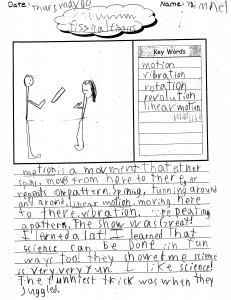 Date: Thurs may 80
Name:
Key Words
motion
vibration
rotation
revolution
linear motion
motion is a movment that ether
spins, moves from here to ther or
repeats one pattern. Spining, Turning around
and around, linear motion, moving here
to there, vibration,
a pattern. The show was Great!
I lerned alat! I learned that
science can be done in fun
ways too! they showed me science
is very, very fun. I like science!
The funniest trick was when they
juggled.